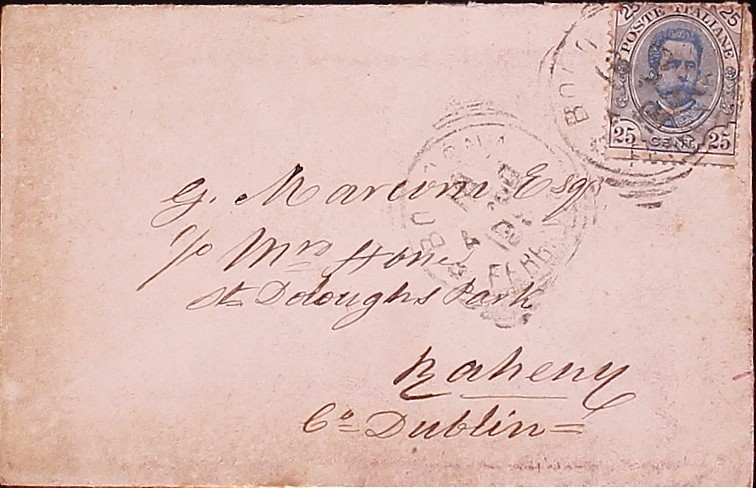 25 POSTE ITALIANE 25
25 CENT. 25
BOLOGNA
FERR
G. Marconi Esqr
c/o Mrs Hone
St Doloughs Park
Raheny
Co Dublin